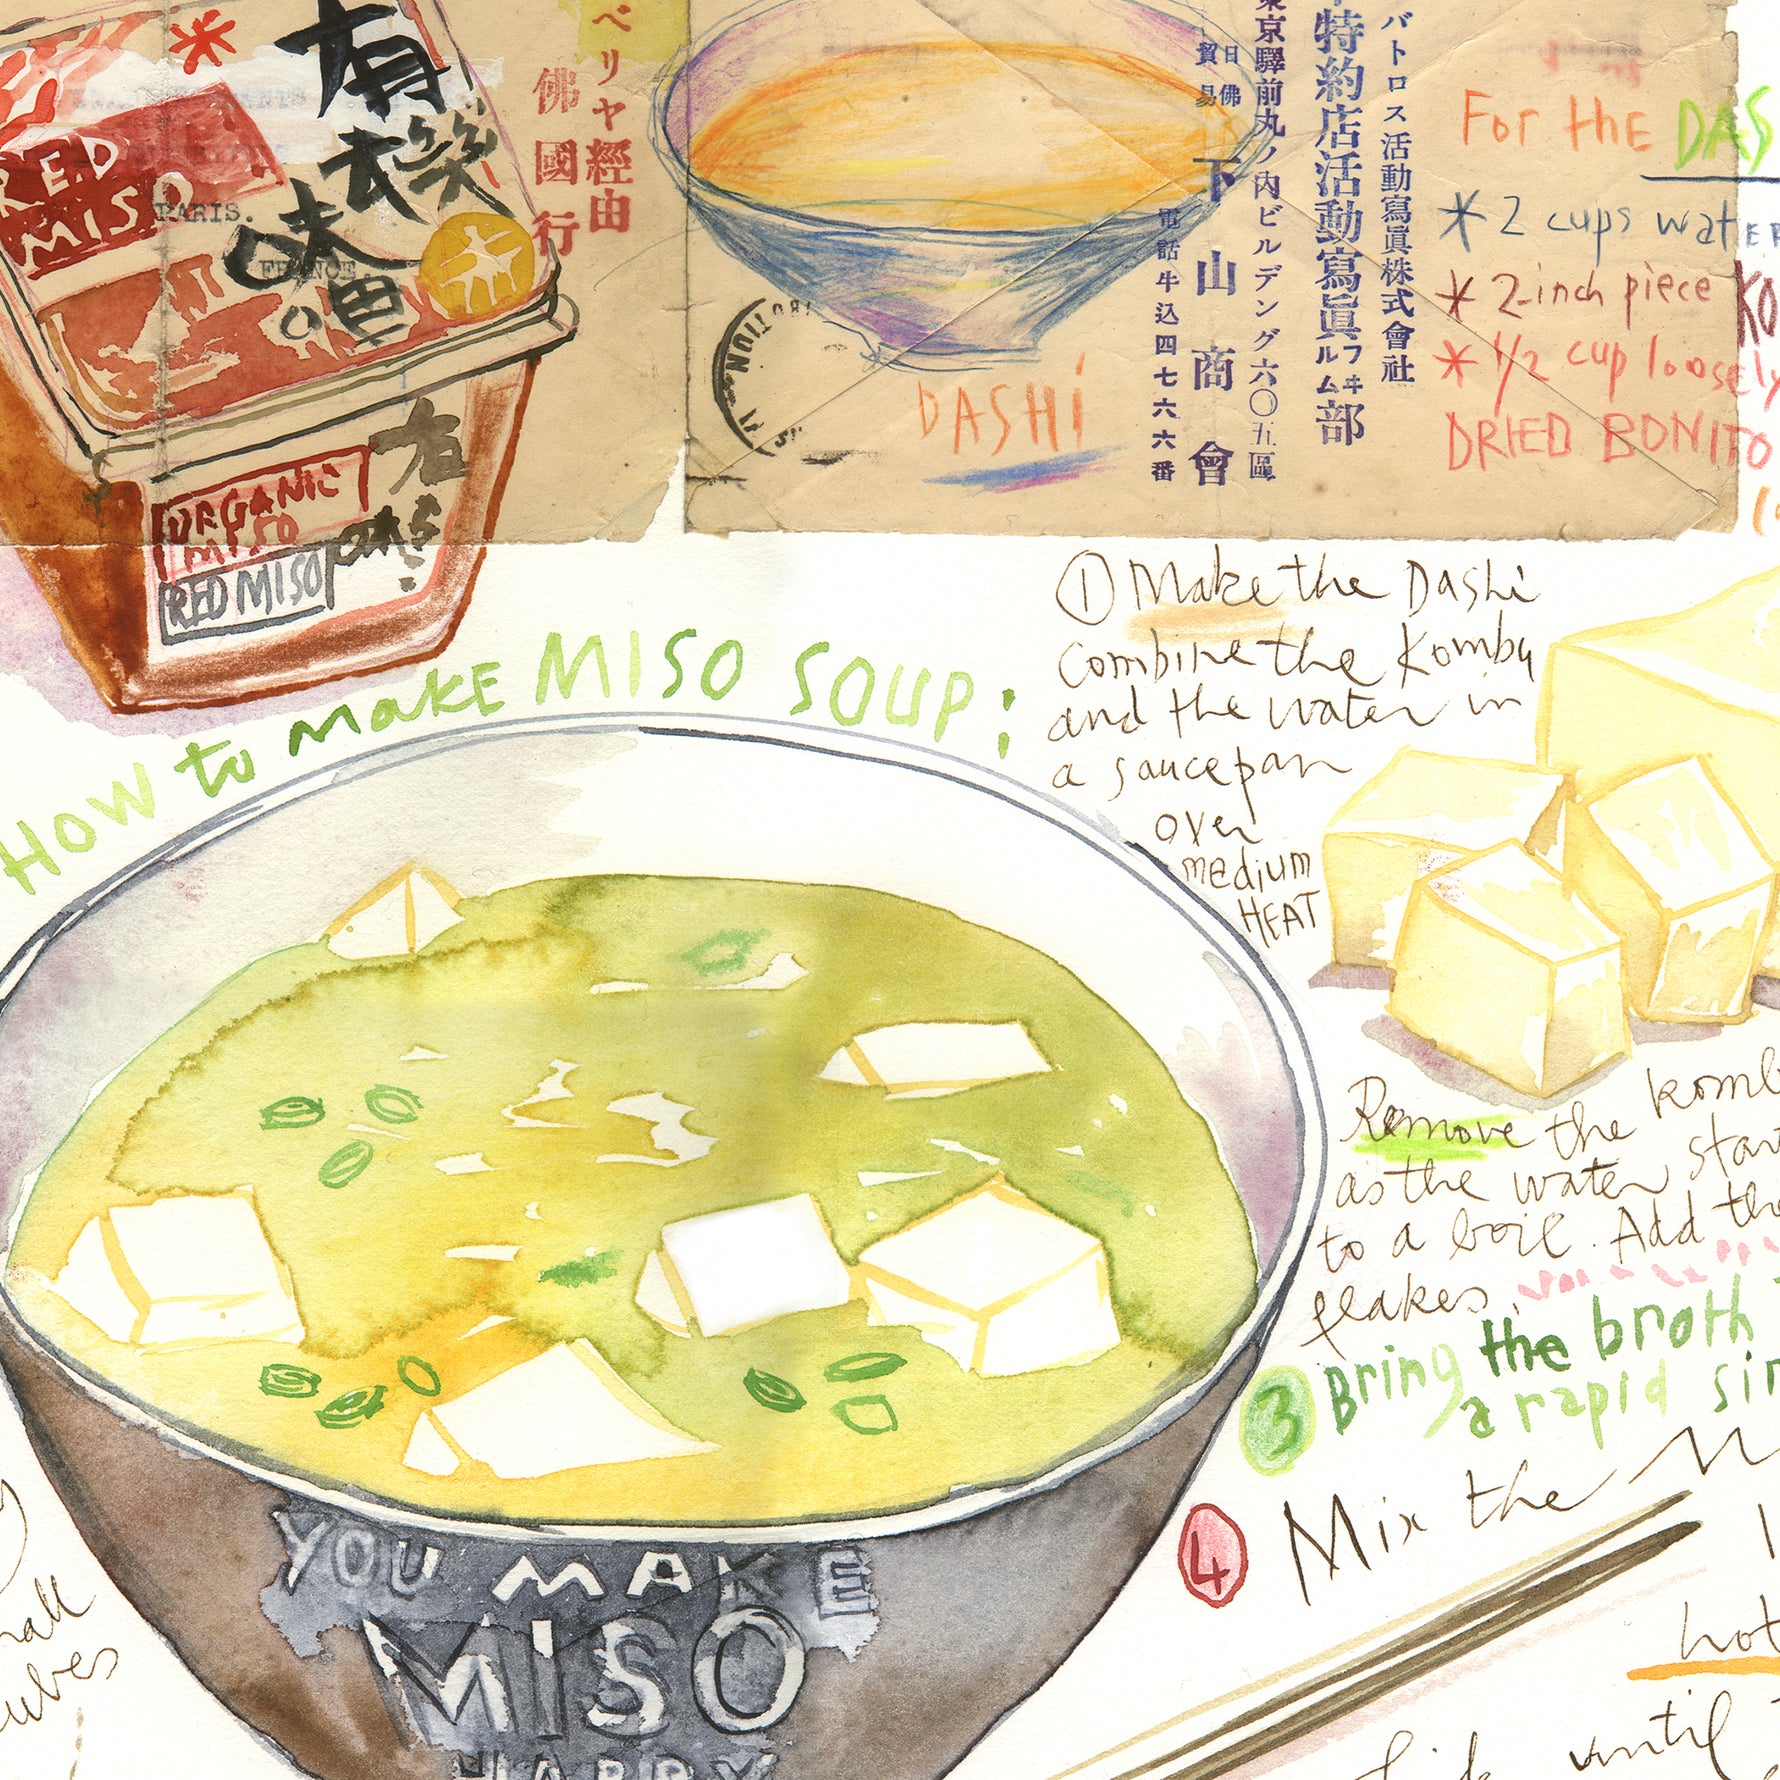 RED
MISO
PARIS.
FRANCE.
有
味
ORGANIC
MISO
RED MISO
ベリヤ經由
佛國行
日佛
貿易
下山商會
東京驛前丸ノ内ビルデング六〇五區
電話牛込四七六六番
特約店活動寫眞フヰルム部
バトロス活動寫眞株式會社
DASHI
For the DAS
* 2 cups water
* 2-inch piece KO
* 1/2 cup loosely
DRIED BONITO
How to make MISO SOUP:
① Make the Dashi
Combine the Kombu
and the water in
a saucepan
over
medium
HEAT
Remove the komb
as the water star
to a boil. Add the
flakes.
③ Bring the broth
a rapid sim
④ Mix the
hot
until
YOU MAKE
MISO
HAPPY